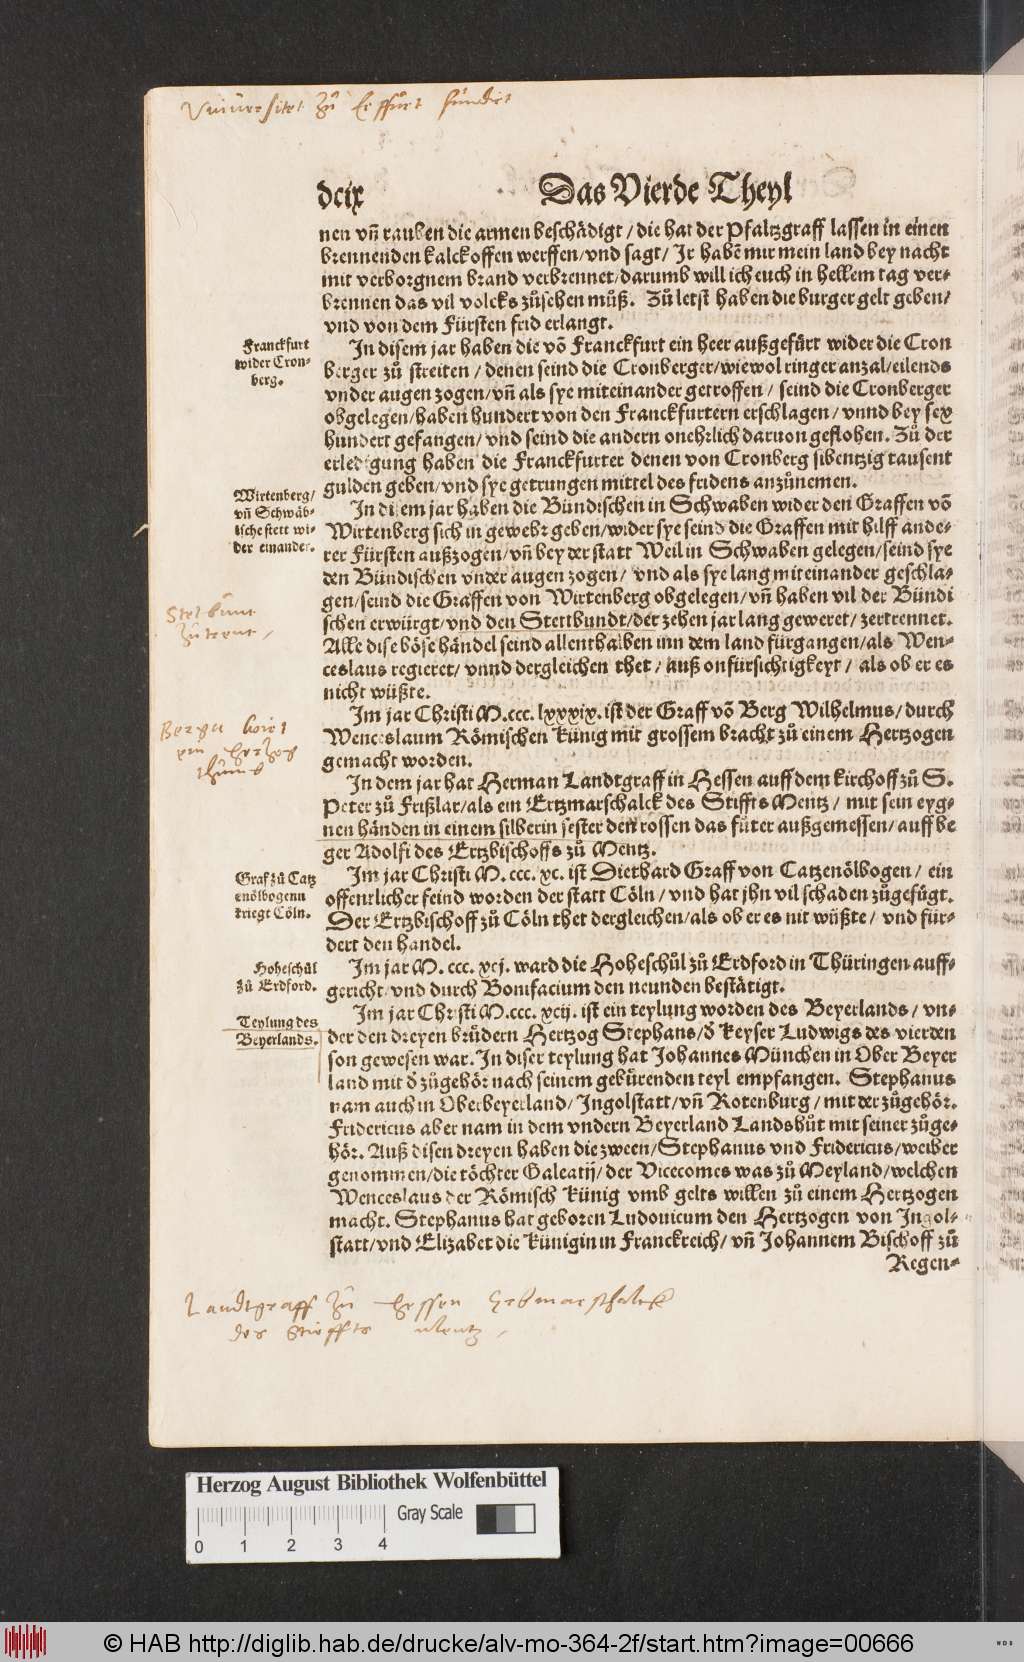 Vniuersitet zů Erffůrt fundirt
dcix
Das Vierde Theyl
nen vñ rauben die armen beschädigt / die hat der Pfaltzgraff lassen in einen
brennenden kalckoffen werffen/vnd sagt/ Jr habẽ mir mein land bey nacht
mit verborgnem brand verbrennet/darumb will ich euch in hellem tag ver-
brennen das vil volcks zůsehen můß. Zů letst haben die burger gelt geben/
vnd von dem Fürsten frid erlangt.
Franckfurt
wider Cron-
berg.
Jn disem jar haben die võ Franckfurt ein heer außgefürt wider die Cron
berger zů streiten / denen seind die Cronberger/wiewol ringer anzal/eilends
vnder augen zogen/vñ als sye miteinander getroffen / seind die Cronberger
obgelegen/haben hundert von den Franckfurtern erschlagen / vnnd bey sex
hundert gefangen/vnd seind die andern onehrlich daruon geflohen. Zů der
erledigung haben die Franckfurter denen von Cronberg sibentzig tausent
gulden geben/vnd sye getrungen mittel des fridens anzůnemen.
Wirtenberg/
vñ Schwäb-
ische stett wi-
der einander.
Jn disem jar haben die Bündischen in Schwaben wider den Graffen võ
Wirtenberg sich in gewehr geben/wider sye seind die Graffen mit hilff ande-
rer Fürsten außzogen/vñ bey der statt Weil in Schwaben gelegen/seind sye
den Bündischen vnder augen zogen/ vnd als sye lang miteinander geschla-
gen/seind die Graffen von Wirtenberg obgelegen/vñ haben vil der Bündi
schen erwürgt/vnd den Stettbundt/der zehen jar lang geweret/ zertrennet.
Alle dise böse händel seind allenthalben inn dem land fürgangen/als Wen-
ceslaus regieret/ vnnd dergleichen thet / auß onfürsichtigkeyt / als ob er es
nicht wüßte.
Stetbunt
zůtrent,
Im jar Christi M.ccc. lxxxix. ist der Graff võ Berg Wilhelmus/ durch
Wenceslaum Römischen Künig mit grossem bracht zů einem Hertzogen
gemacht worden.
Bergu wirt
ein Hertzog
thumb
Jn dem jar hat Herman Landtgraff in Hessen auff dem kirchoff zů S.
Peter zů Frißlar/als ein Ertzmarschalck des Stiffts Mentz / mit sein eyg-
nen händen in einem silberin sester den rossen das füter außgemessen/auff be
ger Adolfi des Ertzbischoffs zů Mentz.
Graf zů Catz
enölbogenn
kriegt Cöln.
Im jar Christi M. ccc. xc. ist Diethard Graff von Catzenölbogen / ein
offentlicher feind worden der statt Cöln / vnd hat jhn vil schaden zůgefügt.
Der Ertzbischoff zů Cöln thet dergleichen/als ob er es nit wüßte / vnd für-
dert den handel.
Hoheschůl
zů Erdford.
Im jar M. ccc. xcj. ward die Hoheschůl zů Erdford in Thüringen auff-
gericht/ vnd durch Bonifacium den neunden bestätigt.
Teylung des
Beyerlands.
Im jar Christi M.ccc. xcij. ist ein teylung worden des Beyerlands / vn-
der den dreyen brüdern Hertzog Stephans/ď Keyser Ludwigs des vierden
son gewesen war. Jn diser teylung hat Johannes München in Ober Beyer
land mit ď zůgehör nach seinem gebürenden teyl empfangen. Stephanus
nam auch in Oberbeyerland/ Ingolstatt/vñ Rotenburg / mit der zůgehör.
Fridericus aber nam in dem vndern Beyerland Landshůt mit seiner zůge-
hör. Auß disen dreyen haben die zween/Stephanus vnd Fridericus/weiber
genommen/die töchter Galeatij/ der Vicecomes was zů Meyland/welchen
Wenceslaus der Römisch Künig vmb gelts willen zů einem Hertzogen
macht. Stephanus hat geboren Ludouicum den Hertzogen von Ingol-
statt/vnd Elizabet die Künigin in Franckreich/ vñ Johannem Bischoff zů
Regen-
Landtgraff zů Hessen Erbmarschalck
des Stieffts Mentz,
Herzog August Bibliothek Wolfenbüttel
Gray Scale
0 1 2 3 4
© HAB http://diglib.hab.de/drucke/alv-mo-364-2f/start.htm?image=00666